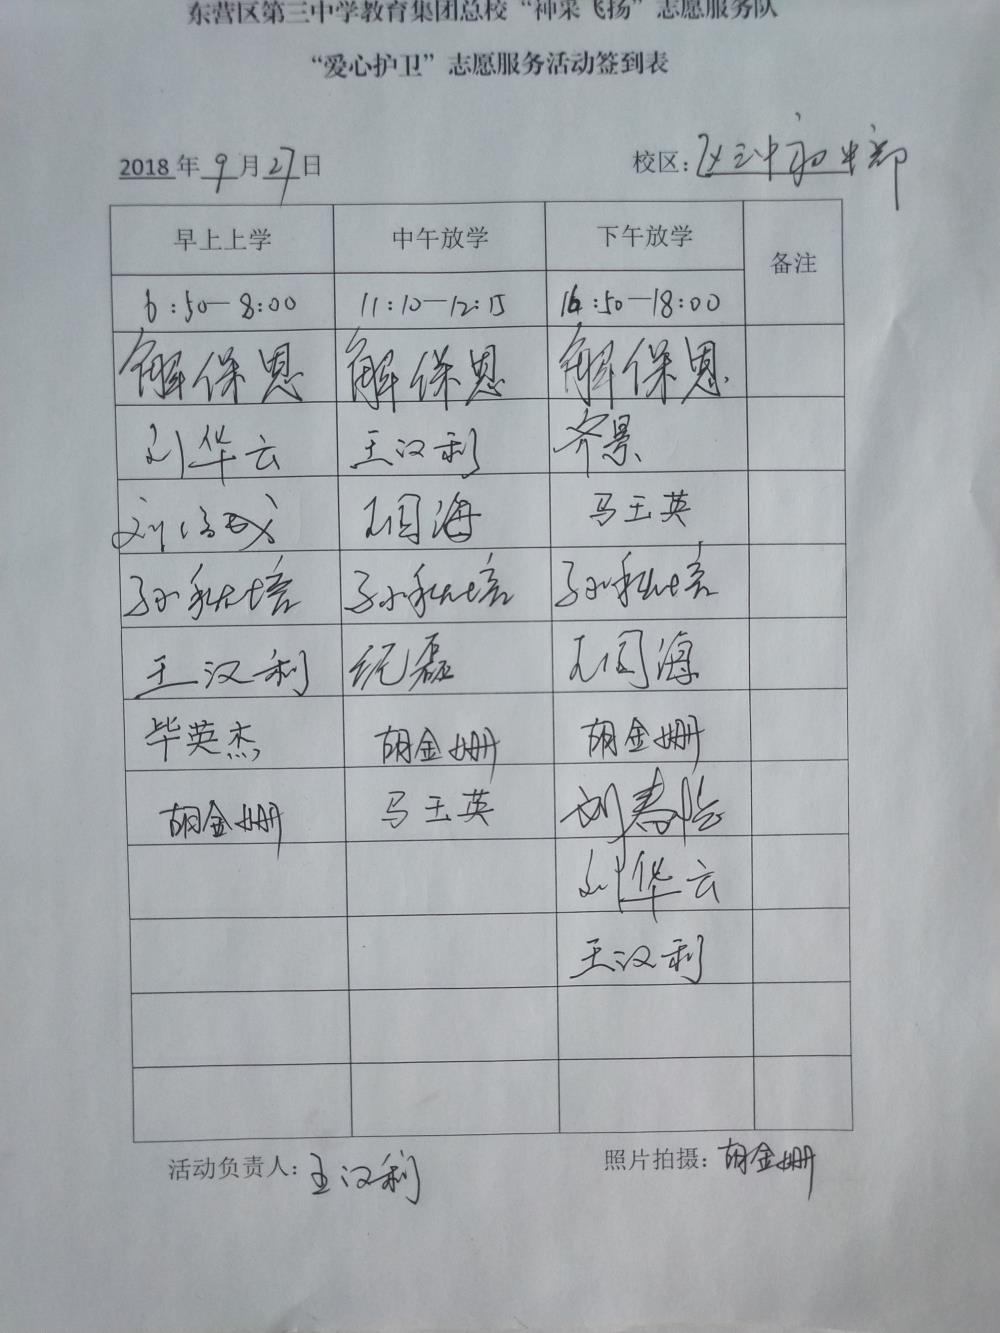 东营区第三中学教育集团总校“神采飞扬”志愿服务队
“爱心护卫”志愿服务活动签到表
2018年9月27日 校区：区三中初中部
早上上学 中午放学 下午放学 备注
6:50—8:00 11:10—12:15 16:50—18:00
解保恩 解保恩 解保恩
刘华云 王汉利 齐景
刘 海 马玉英
孙 培 孙 培 孙 培
王汉利 纪磊 海
毕英杰 胡金姗 胡金姗
胡金姗 马玉英 刘春
刘华云
王汉利
活动负责人：王汉利 照片拍摄：胡金姗